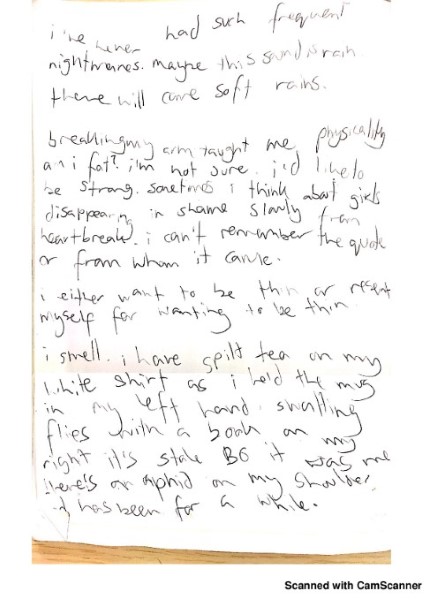 i've never had such frequent
nightmares. maybe this sand is rain
there will come soft rains.
breaking my arm taught me physicality
am i fat? i'm not sure. i'd like to
be strong. sometimes i think about girls
disappearing in shame slowly from
heartbreak. i can't remember the quote
or from whom it came.
i either want to be thin or resent
myself for wanting to be thin.
i smell. i have spilt tea on my
white shirt as i held the mug
in my left hand. swatting
flies with a book on my
right it's stale BO it was me
there's an aphid on my shoulder
it has been for a while.
Scanned with CamScanner